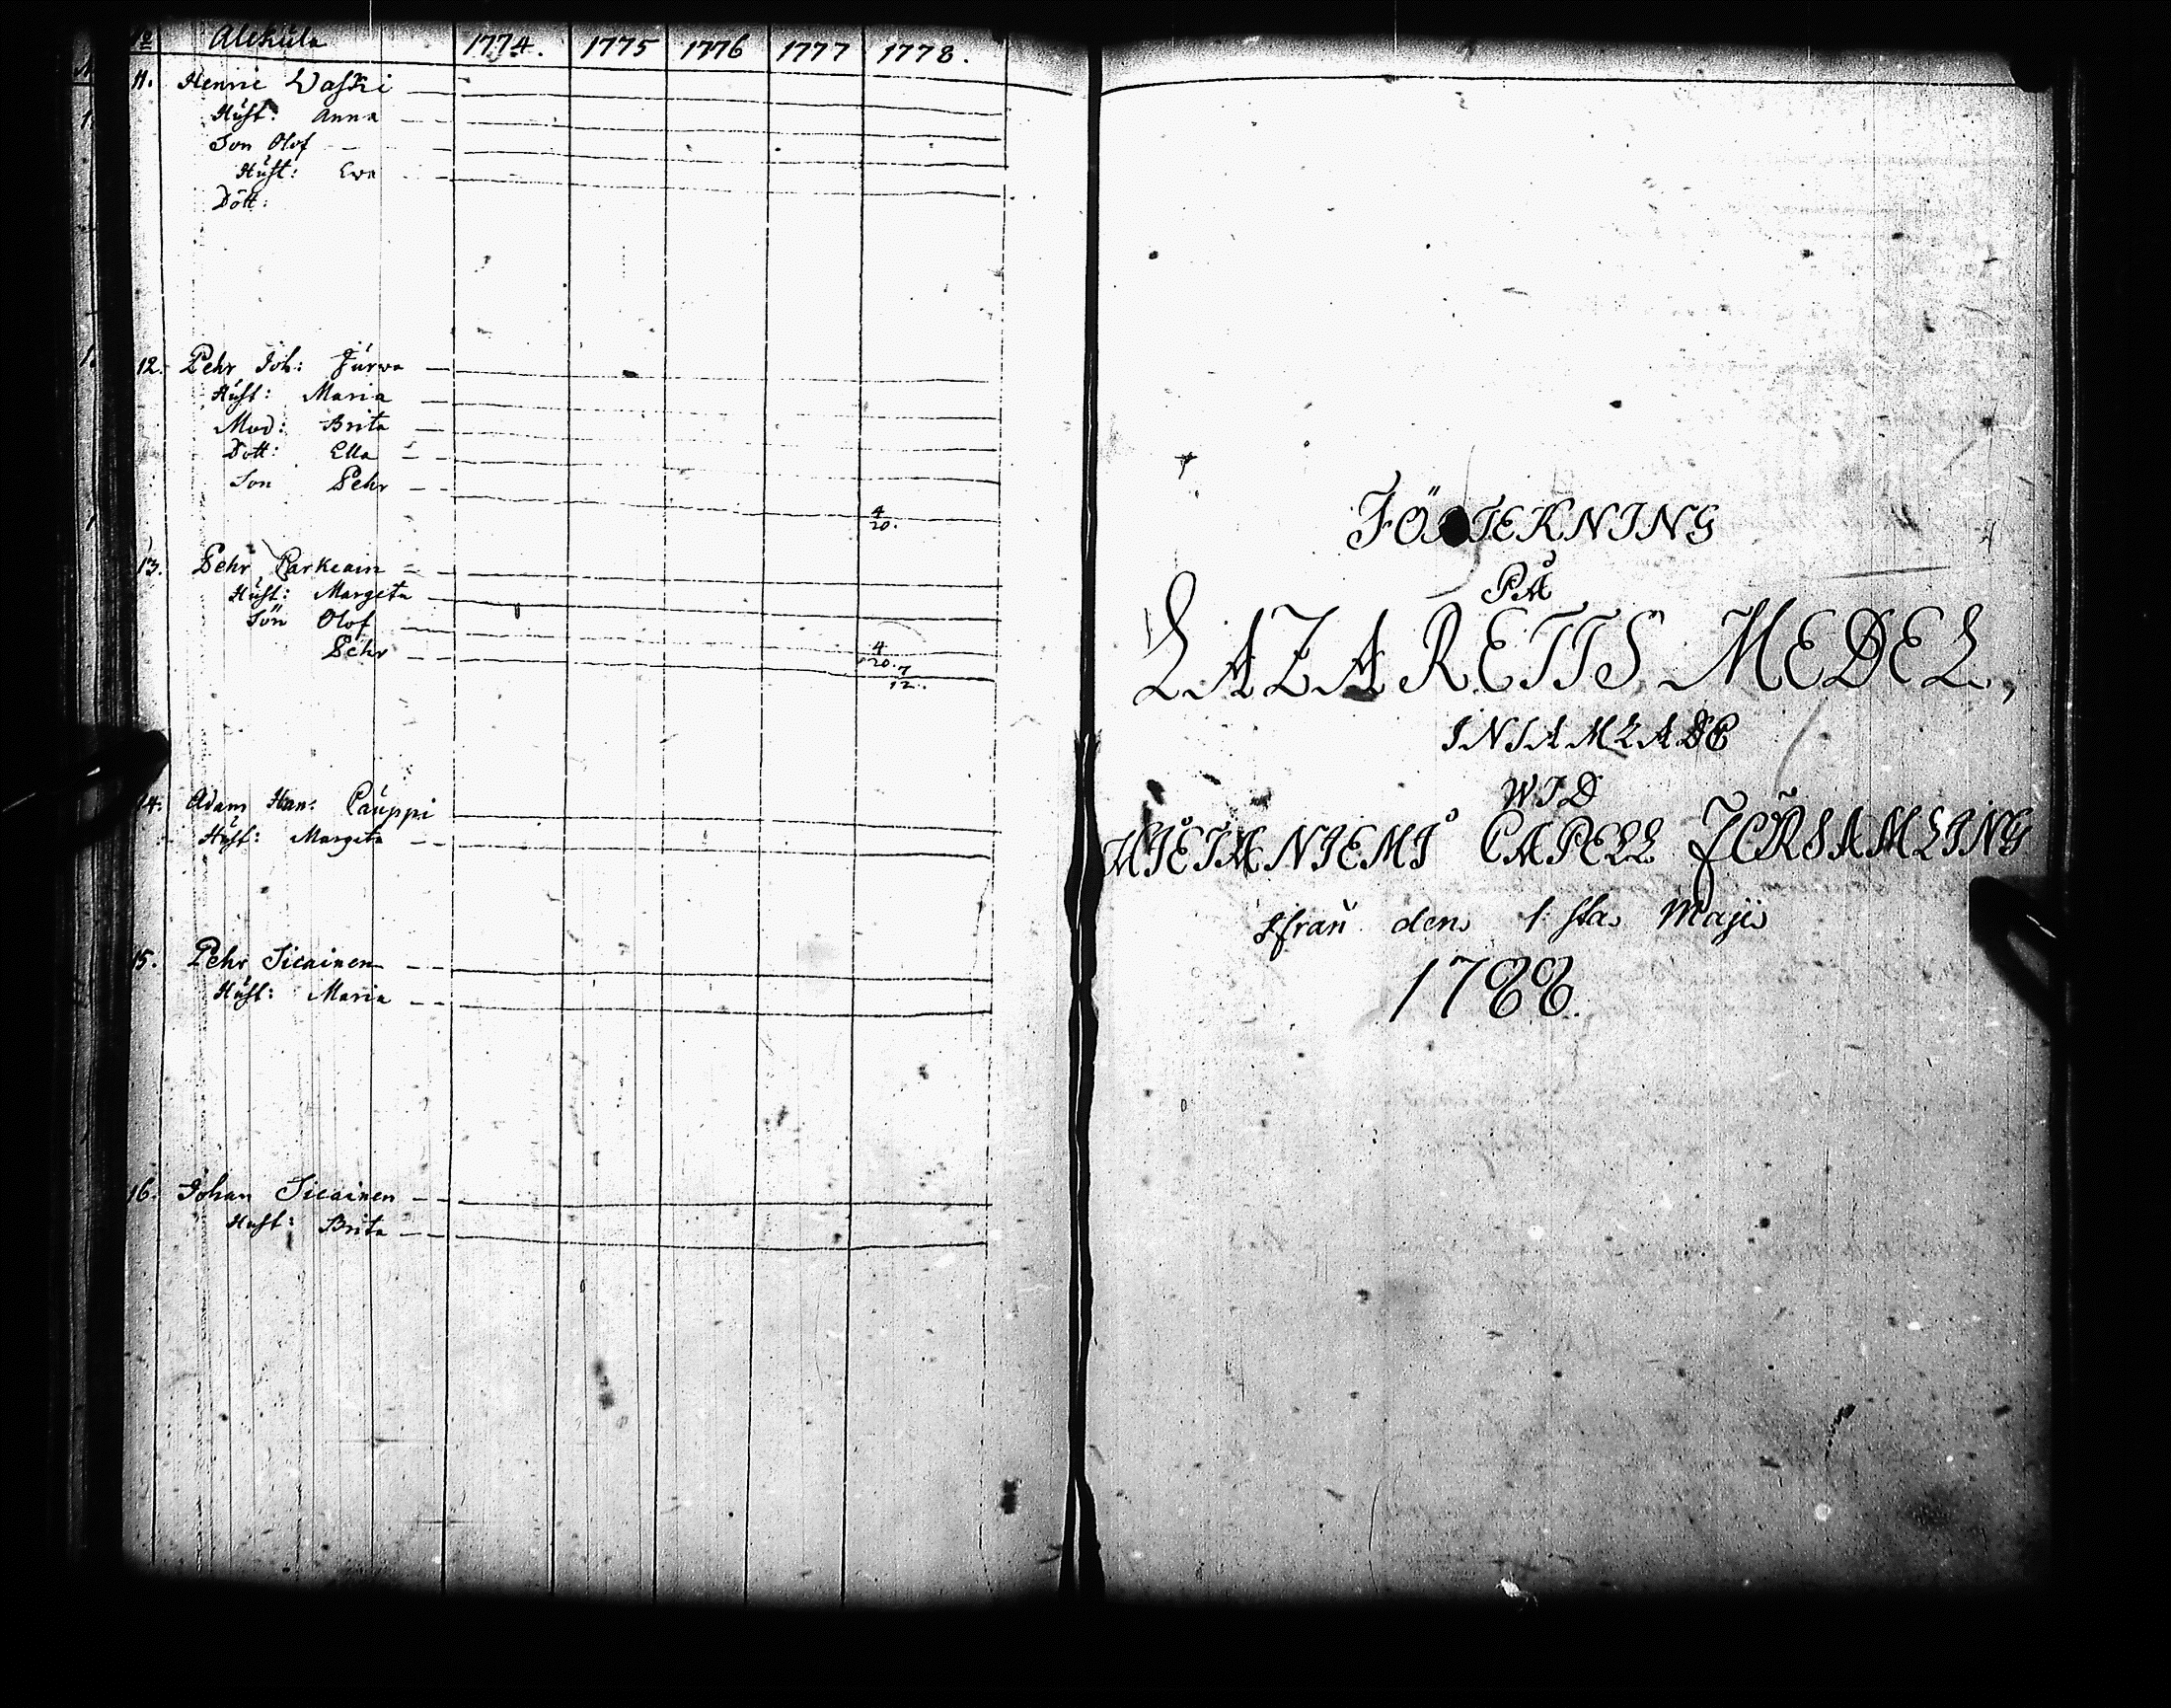 No Alckula 1774. 1775 1776 1777 1778.
11. Henric Waski
Hust: Anna
Son Olof
Hust: Ewa
Dött:
12. Pehr Joh: Jurwa
Hust: Maria
Mod: Brita
Dott: Ella
Son Pehr
4/20.
13. Pehr Parkeain
Hust: Margeta
Sön Olof
Pehr 4/20. 7/12.
14. Adam Han: Lauppi
Hust: Margeta
15. Pehr Sicainen
Hust: Maria
16. Johan Sicainen
Hust: Brita
FÖRTEKNING
PÅ
LAZARETTS MEDEL,
INSAMLADE
WID
HIETANIEMI CAPELL FÖRSAMLING
Ifrån den 1:sta Maji
1788.